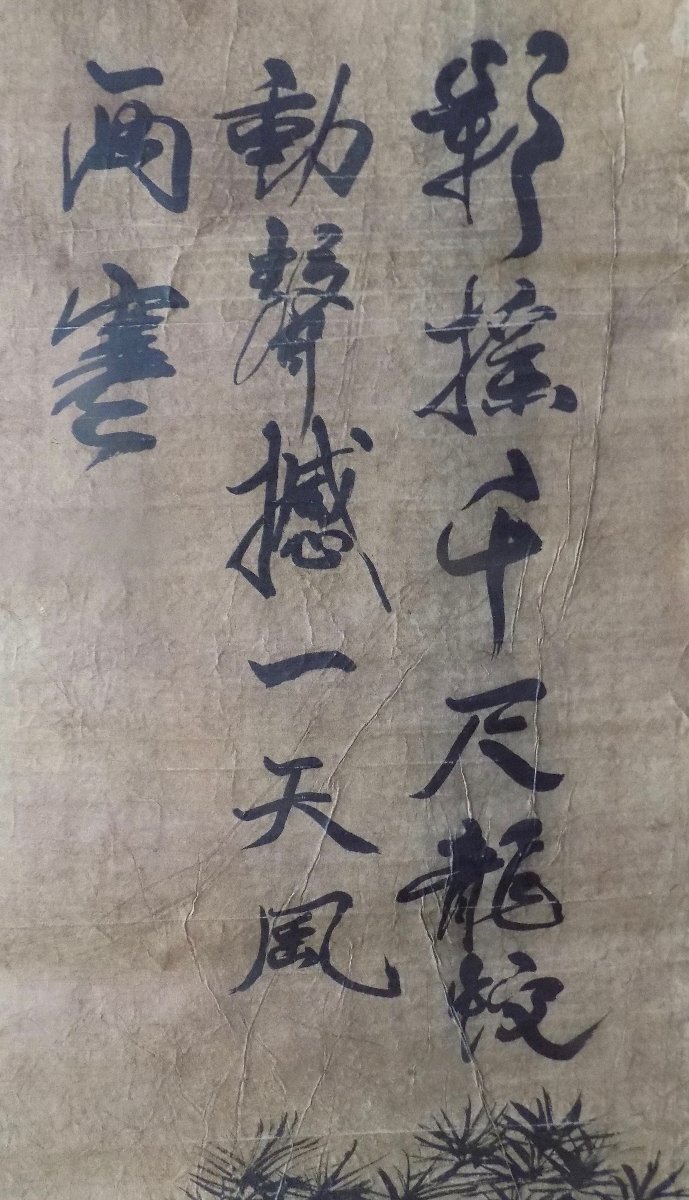 影搖千尺龍蛟
動聲撼一天風
雨寒